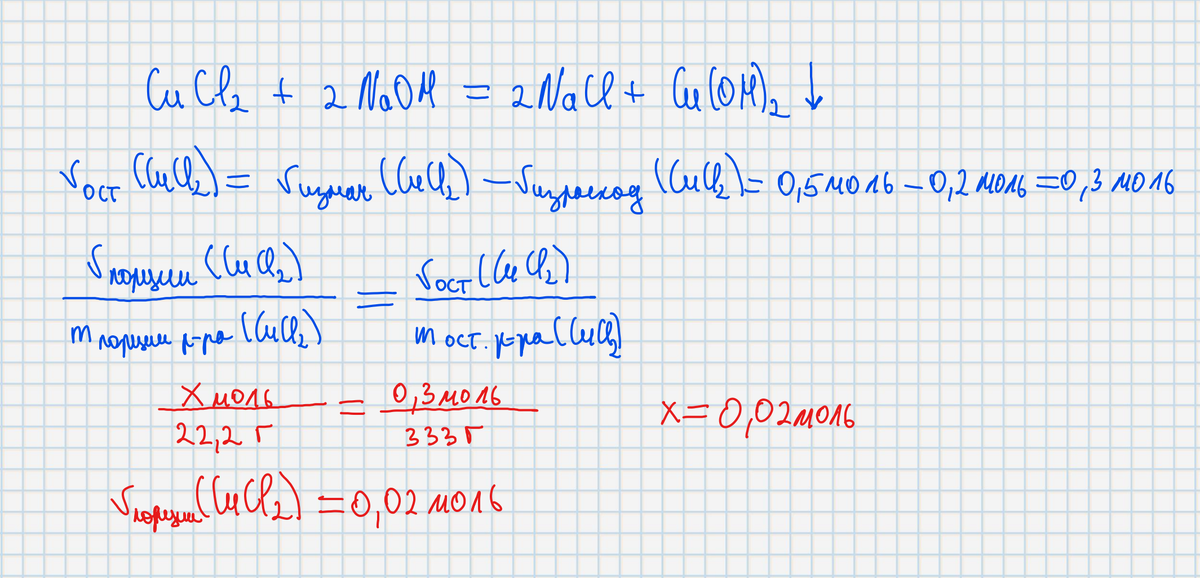 CuCl₂ + 2NaOH = 2NaCl + Cu(OH)₂ ↓
νост (CuCl₂) = νизнач (CuCl₂) – νизрасход (CuCl₂) = 0,5 моль – 0,2 моль = 0,3 моль
νпорции (CuCl₂) / mпорции р-ра (CuCl₂) = νост (CuCl₂) / mост. р-ра (CuCl₂)
x моль / 22,2 г = 0,3 моль / 333 г x = 0,02 моль
νпорции (CuCl₂) = 0,02 моль